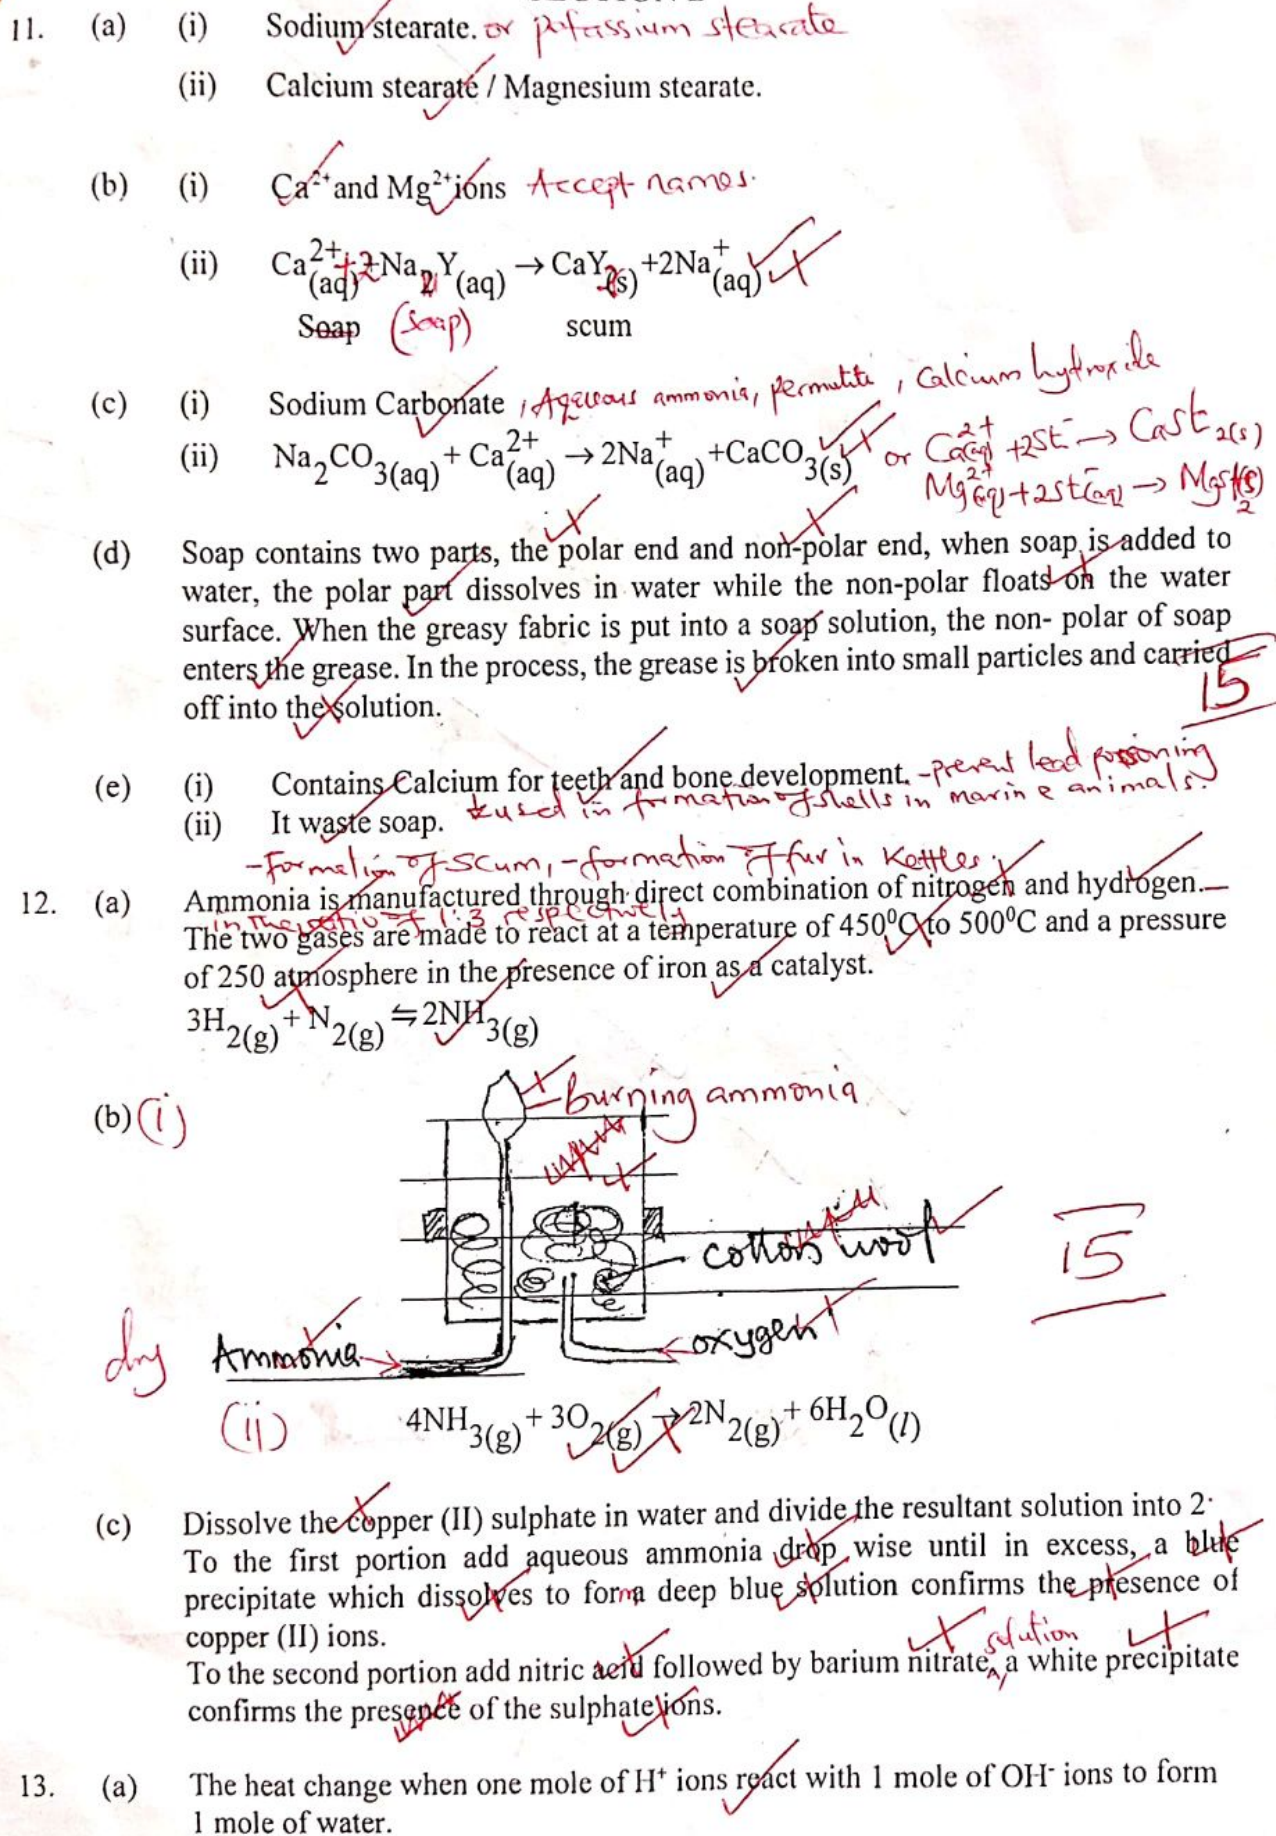 11. (a) (i) Sodium stearate. or potassium stearate
(ii) Calcium stearate / Magnesium stearate.
(b) (i) Ca²⁺ and Mg²⁺ ions Accept names.
(ii) Ca²⁺(aq) + 2Na₂Y(aq) → CaY₂(s) + 2Na⁺(aq)
Soap (Soap) scum
(c) (i) Sodium Carbonate, Aqueous ammonia, permutite, Calcium hydroxide
(ii) Na₂CO₃(aq) + Ca²⁺(aq) → 2Na⁺(aq) + CaCO₃(s) or Ca²⁺(aq) + 2St⁻ → CaSt₂(s)
Mg²⁺(aq) + 2St⁻(aq) → MgSt₂(s)
(d) Soap contains two parts, the polar end and non-polar end, when soap is added to
water, the polar part dissolves in water while the non-polar floats on the water
surface. When the greasy fabric is put into a soap solution, the non- polar of soap
enters the grease. In the process, the grease is broken into small particles and carried
off into the solution.
15
(e) (i) Contains Calcium for teeth and bone development. - prevent lead poisoning
& used in formation of shells in marine animals.
(ii) It waste soap.
- Formation of scum, - formation of fur in Kettles.
12. (a) Ammonia is manufactured through direct combination of nitrogen and hydrogen.
in the ratio of 1:3 respectively
The two gases are made to react at a temperature of 450⁰C to 500⁰C and a pressure
of 250 atmosphere in the presence of iron as a catalyst.
3H₂(g) + N₂(g) ⇋ 2NH₃(g)
(b) (i)
Burning ammonia
cotton wool
15
dry Ammonia
oxygen
(ii) 4NH₃(g) + 3O₂(g) → 2N₂(g) + 6H₂O(l)
(c) Dissolve the copper (II) sulphate in water and divide the resultant solution into 2.
To the first portion add aqueous ammonia drop wise until in excess, a blue
precipitate which dissolves to form a deep blue solution confirms the presence of
copper (II) ions.
solution
To the second portion add nitric acid followed by barium nitrate, a white precipitate
confirms the presence of the sulphate ions.
13. (a) The heat change when one mole of H⁺ ions react with 1 mole of OH⁻ ions to form
1 mole of water.